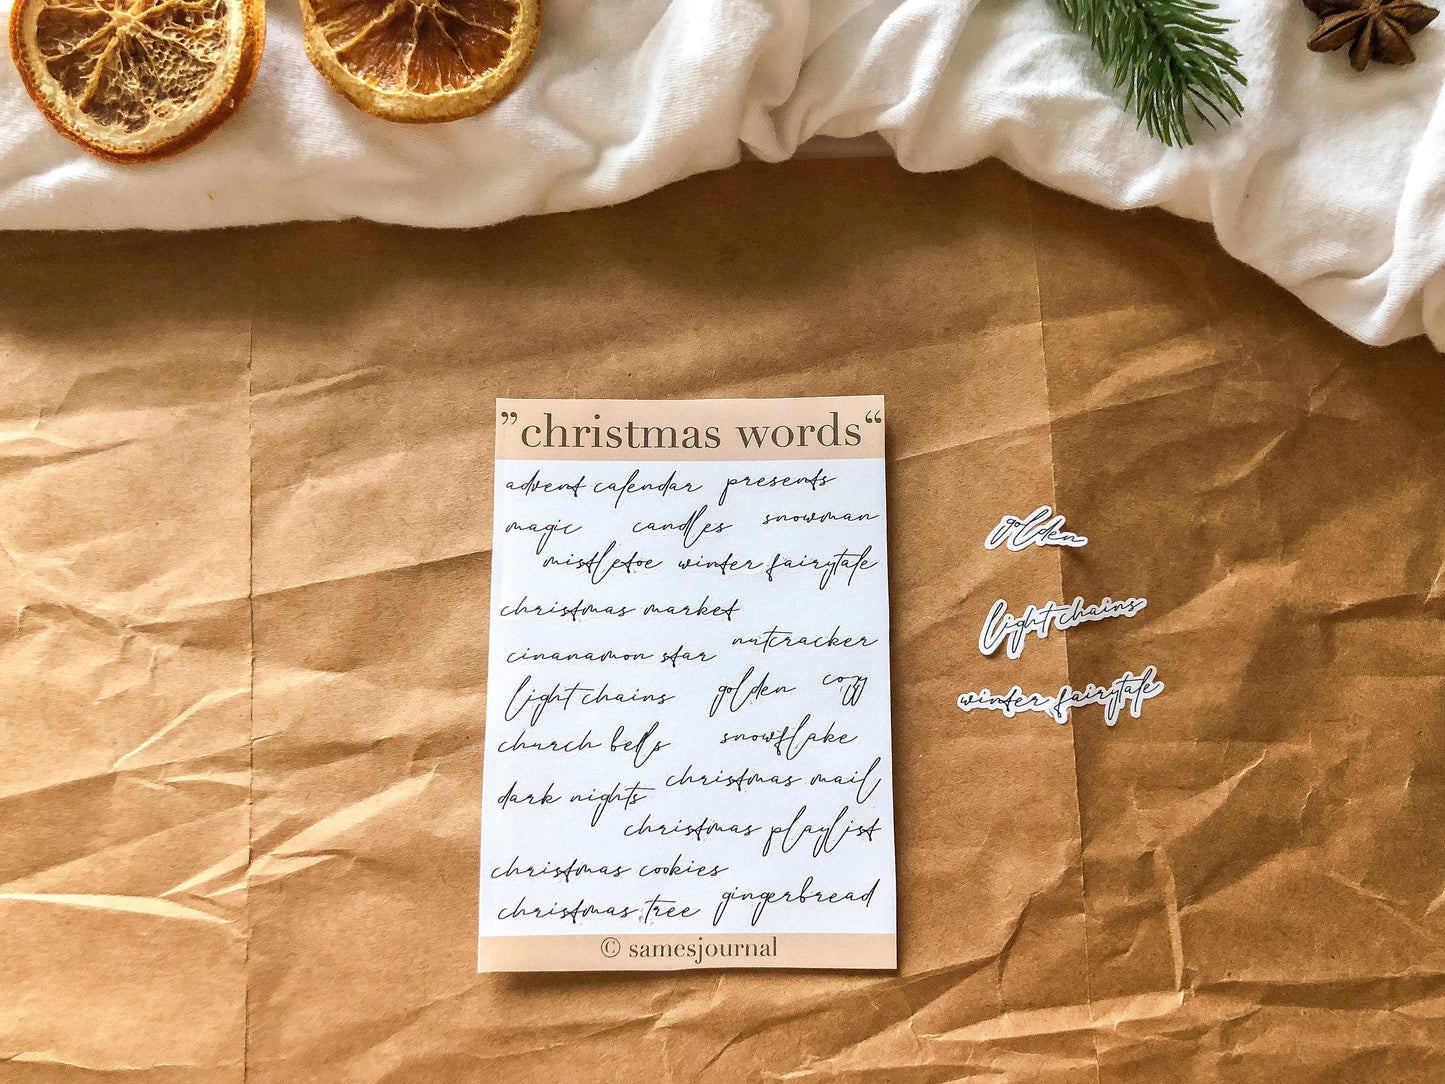 ”christmas words“
advent calendar presents
magic candles snowman
mistletoe winter fairytale
christmas market
cinanamon star nutcracker
light chains golden cozy
church bells snowflake
dark nights christmas mail
christmas playlist
christmas cookies
christmas tree gingerbread
© samesjournal
golden
light chains
winter fairytale